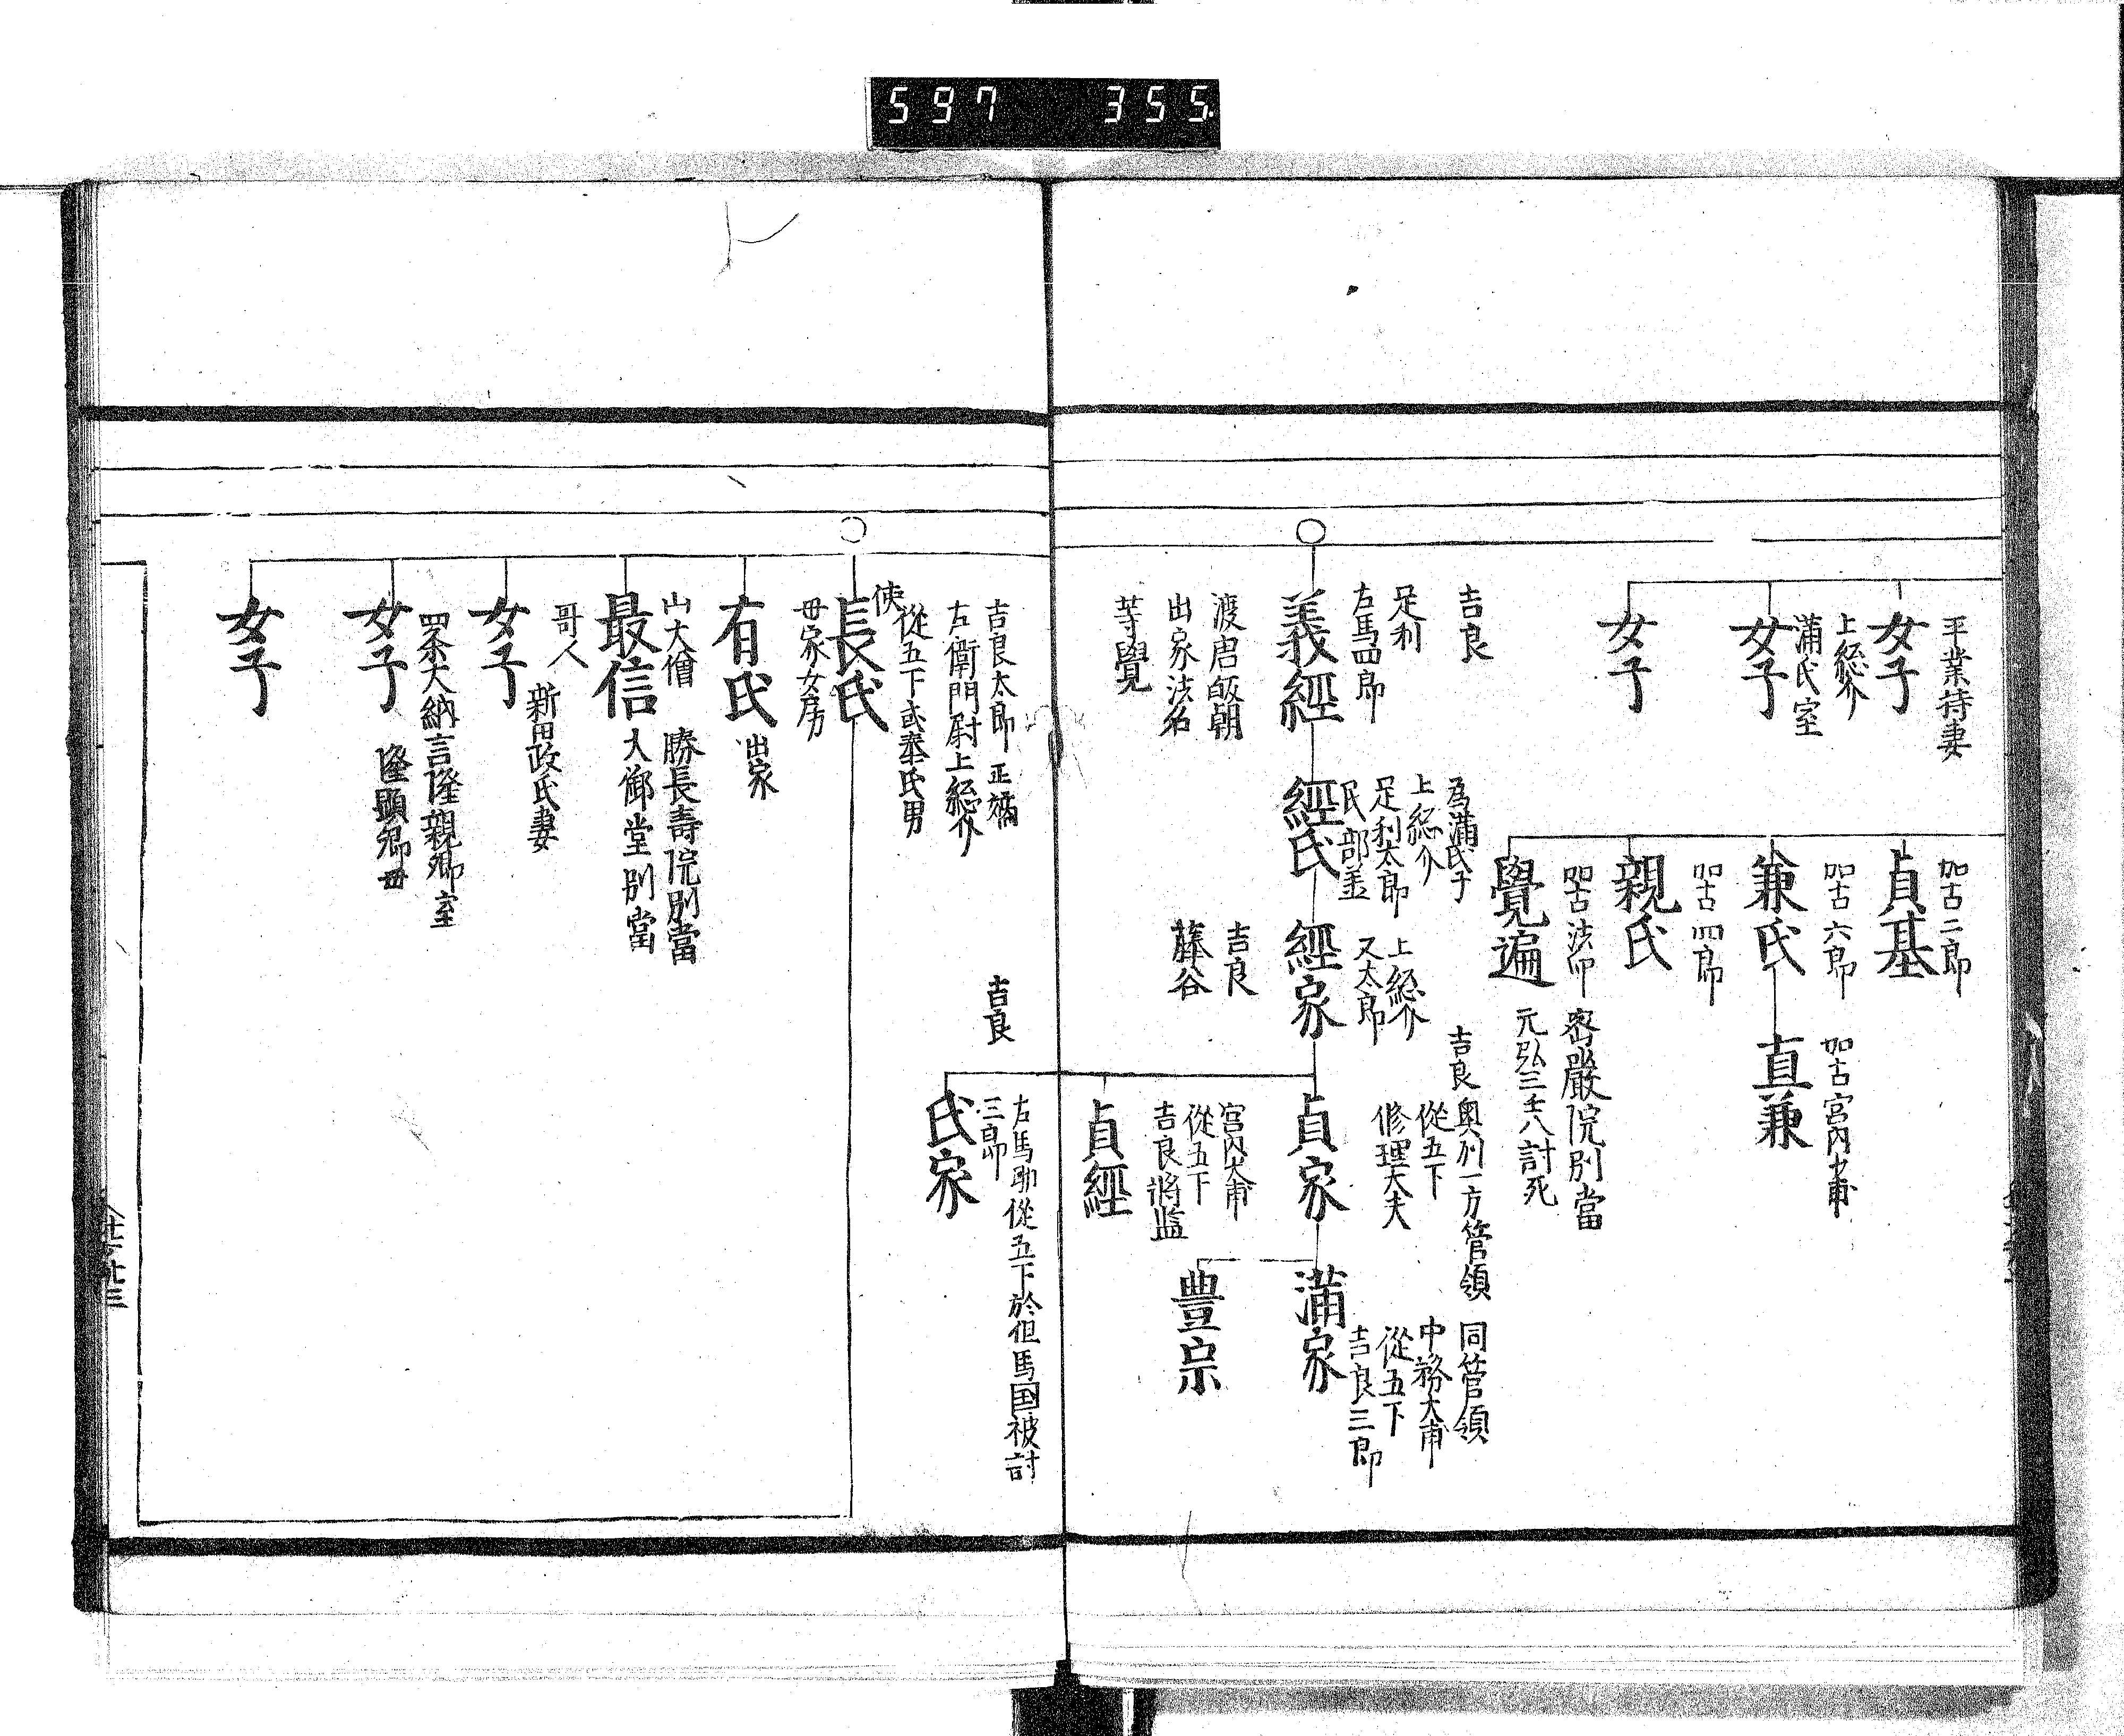 597 355
平業持妻
女子
上総介
満氏室
女子
女子
加古二郎
貞基
加古六郎
兼氏
加古宮内少甫
直兼
加古四郎
親氏
加古法印 密嚴院別當
覺遍
元弘三壬八討死
吉良
足利
左馬四郎
義經
渡唐皈朝
出家法名
等覺
為満氏子
上総介
足利太郎
民部丞
經氏
上総介
又太郎
經家
吉良
藤谷
吉良
奥州一方管領
從五下
修理大夫
貞家
同管領
中務大甫
從五下
吉良三郎
満家
豊宗
宮内大甫
從五下
吉良將監
貞經
吉良
左馬助從五下於但馬国被討
三郎
氏家
吉良太郎 正嫡
左衛門尉上総介
使
從五下或泰氏男
長氏
母家女房
有氏
出家
山大僧 勝長壽院別當
最信
大御堂別當
哥人
新田政氏妻
女子
四条大納言隆親卿室
女子
隆顕卿母
女子